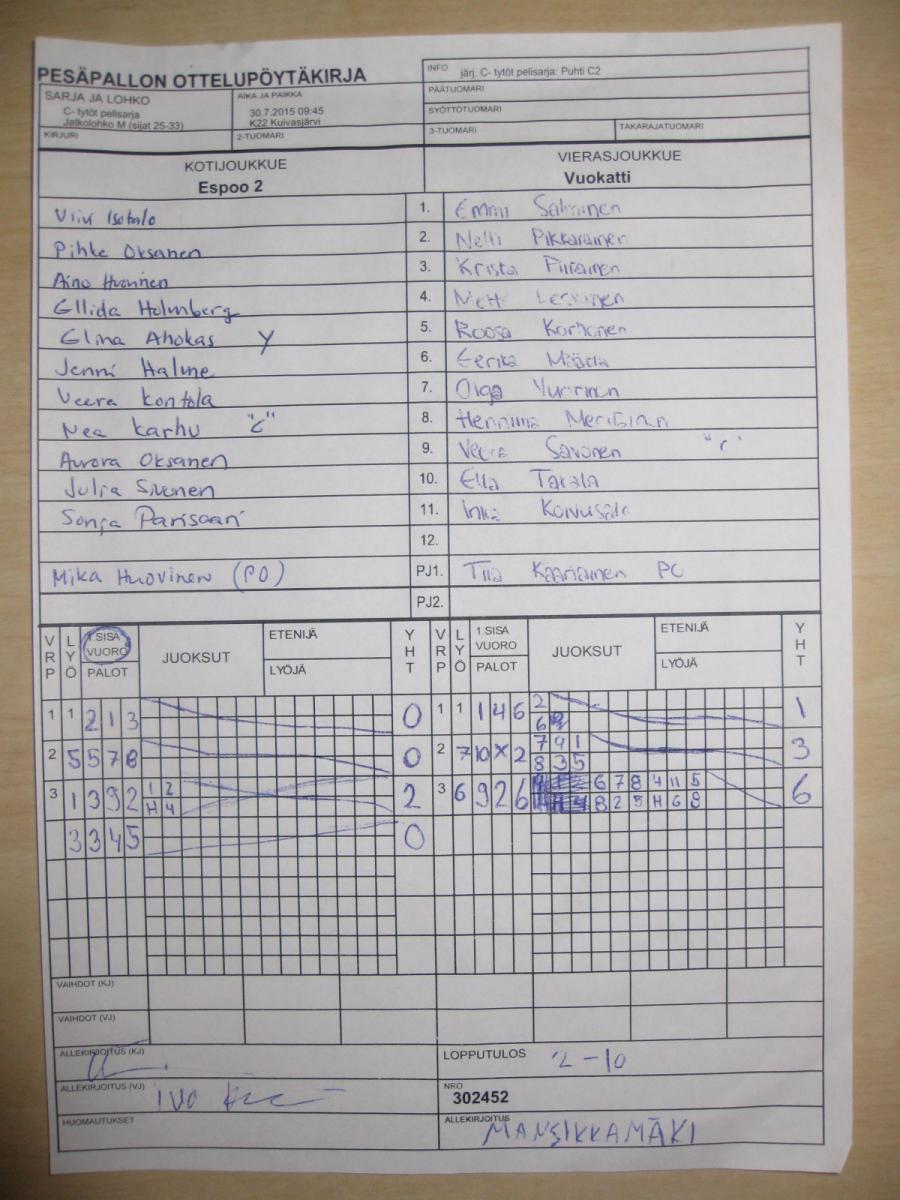 PESÄPALLON OTTELUPÖYTÄKIRJA
INFO järj. C- tytöt pelisarja: Puhti C2
PÄÄTUOMARI
SARJA JA LOHKO
C- tytöt pelisarja
Jatkolohko M (sijat 25-33)
AIKA JA PAIKKA
30.7.2015 09:45
K22 Kuivasjärvi
SYÖTTÖTUOMARI
KIRJURI 2-TUOMARI 3-TUOMARI TAKARAJATUOMARI
KOTIJOUKKUE VIERASJOUKKUE
Espoo 2 Vuokatti
Viivi Isotalo 1. Emmi Salminen
Pihke Oksanen 2. Nelli Pikkarainen
Aino Huovinen 3. Krista Piirainen
Ellida Holmberg 4.
Elina Ahokas Y 5. Roosa Korhonen
Jenni Halme 6. Eerika Määttä
Veera Kontola 7. Olga
Nea Karhu "C" 8. Henniina
Aurora Oksanen 9. Veera Savonen "C"
Julia Sivonen 10. Ella Takala
Sonja 11. Inka Koivusalo
12.
Mika Huovinen (PO) PJ1. Tiia Kaariainen PO
PJ2.
VRP LYÖ 1.SISÄ VUORO PALOT JUOKSUT ETENIJÄ LYÖJÄ YHT VRP LYÖ 1.SISÄ VUORO PALOT JUOKSUT ETENIJÄ LYÖJÄ YHT
1 1 2 1 3 0 1 1 1 4 6 2 1
6
2 5 5 7 8 0 2 7 10 X 2 7 4 1 3
8 3 5
3 1 3 9 2 1 2 2 3 6 9 2 6 6 7 8 4 11 5 6
H 4 8 2 5 H 6 8
3 3 4 5 0
VAIHDOT (KJ)
VAIHDOT (VJ)
ALLEKIRJOITUS (KJ) LOPPUTULOS 2-10
ALLEKIRJOITUS (VJ) NRO
302452
HUOMAUTUKSET ALLEKIRJOITUS
MANSIKKAMÄKI